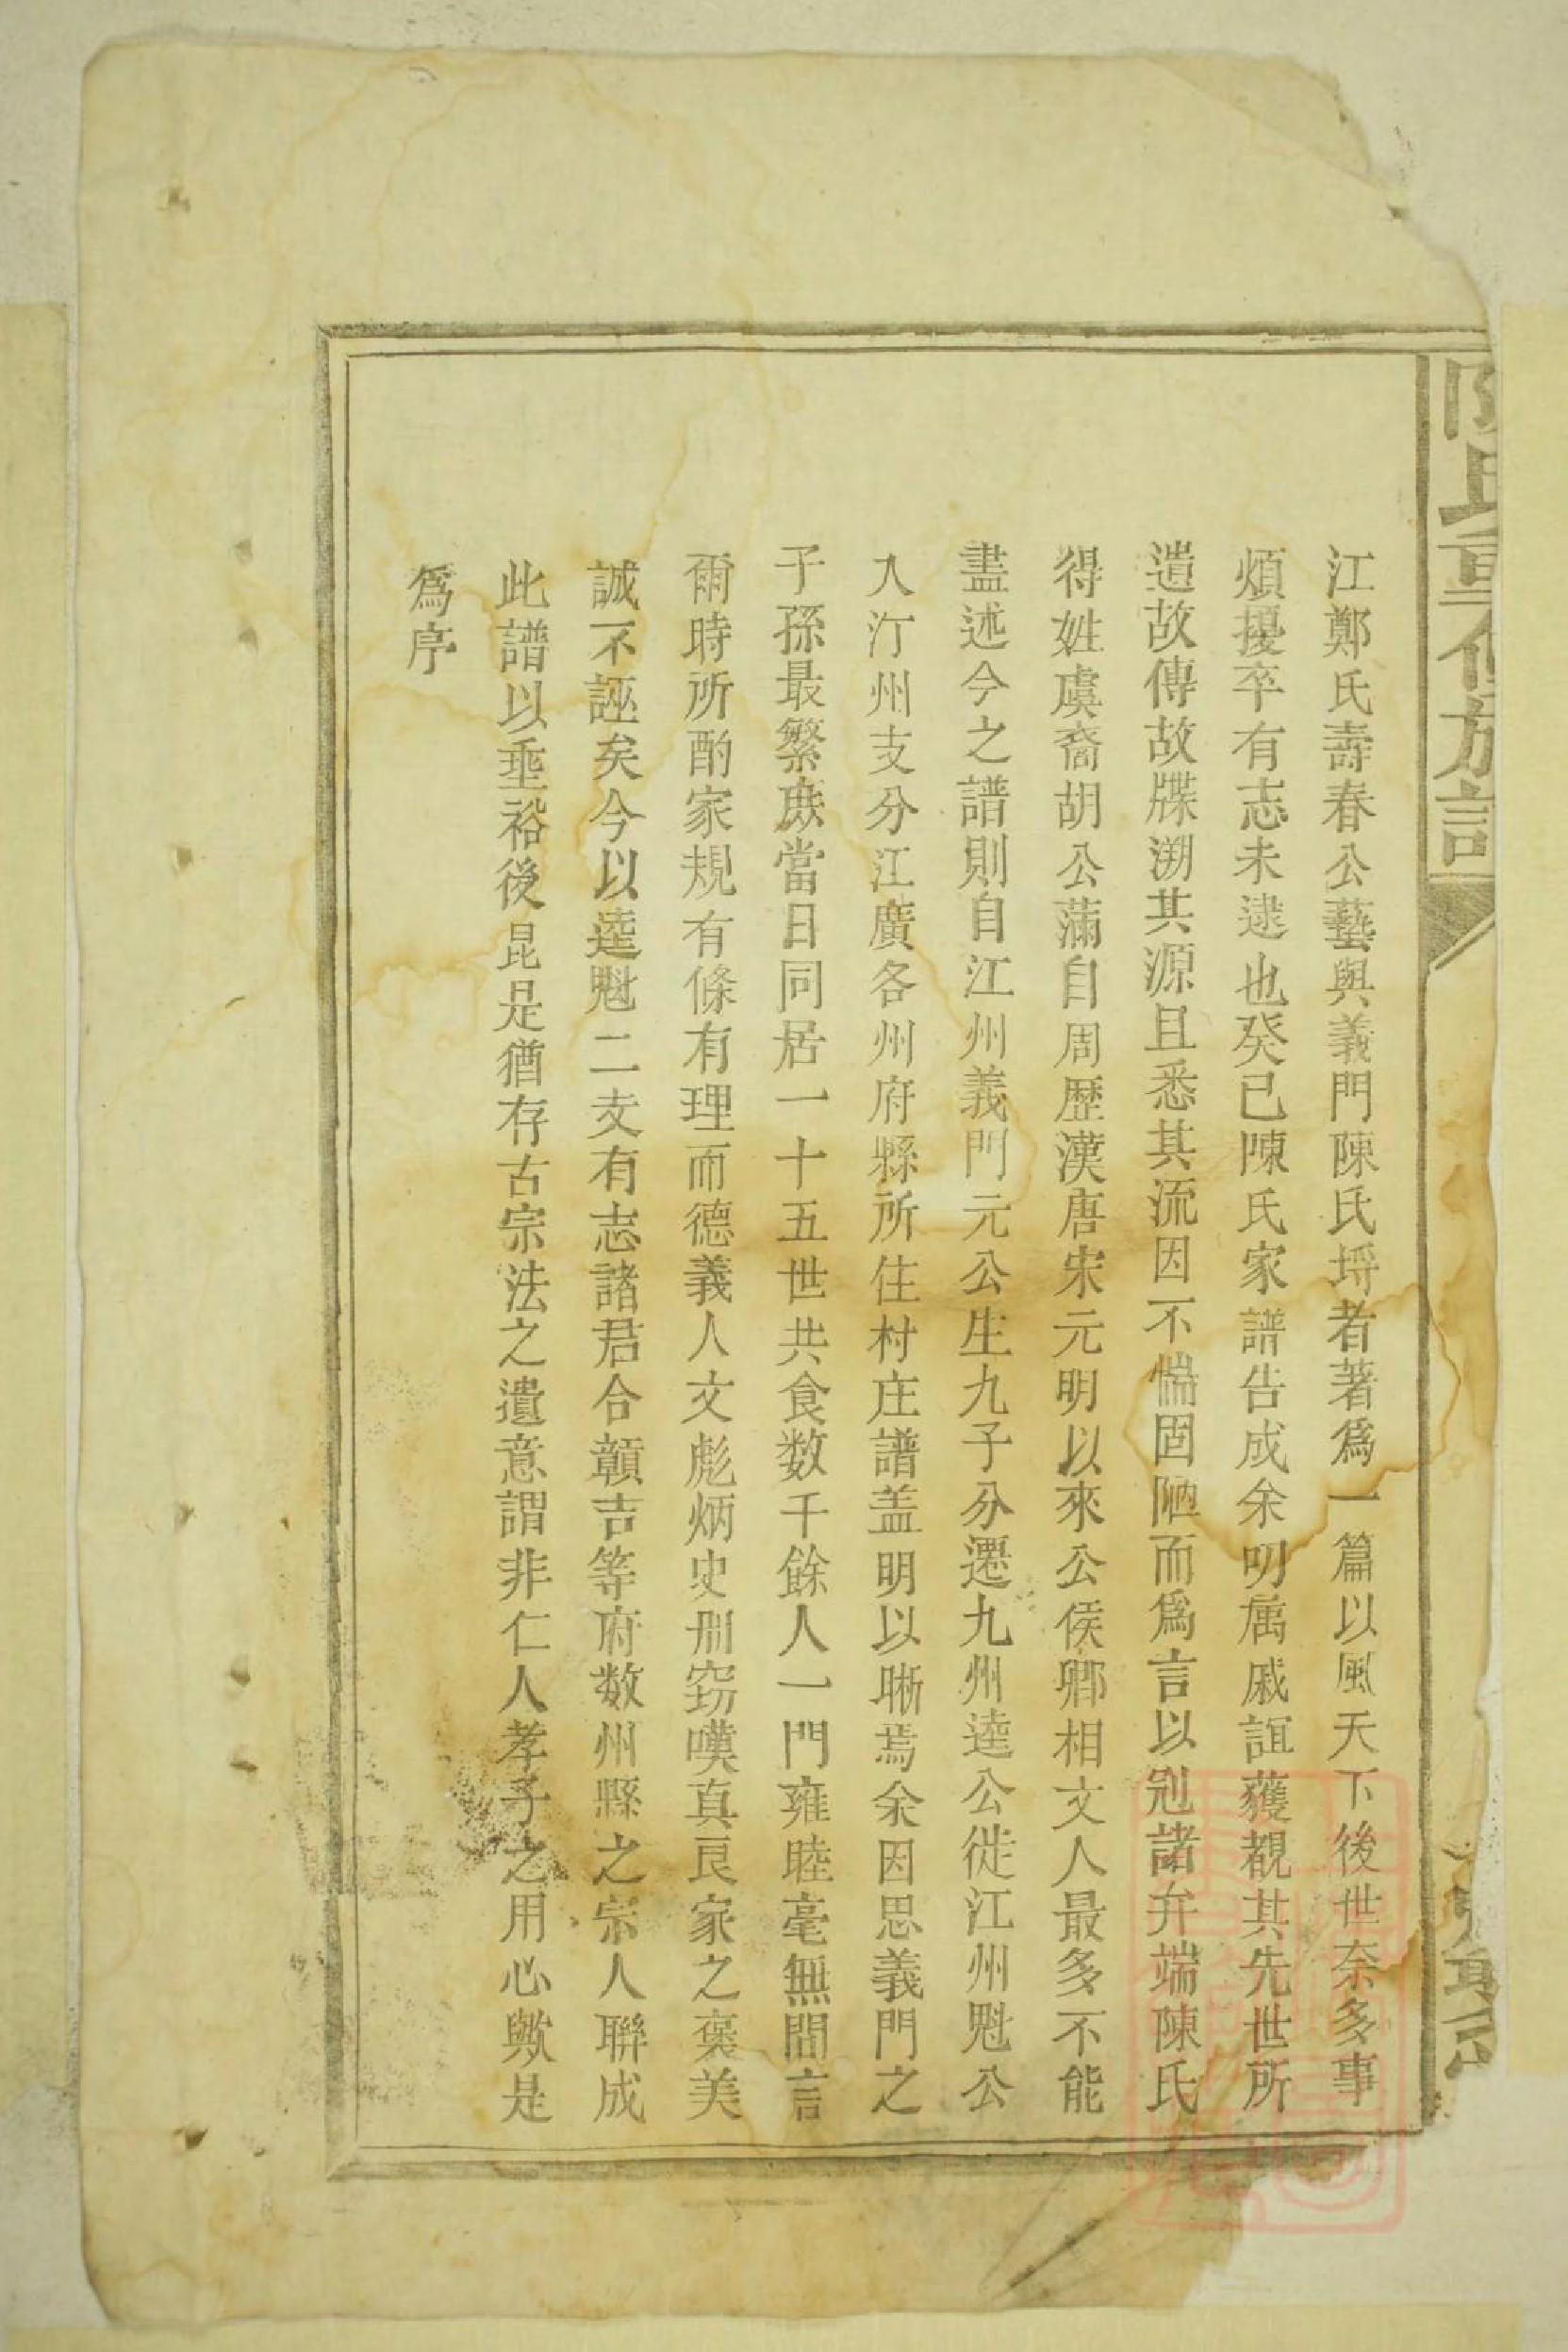 江鄭氏壽春公藝與義門陳氏埓者著爲一篇以風天下後世奈多事
煩擾卒有志未逮也癸巳陳氏家譜告成余叨属戚誼獲覩其先世所
遺故傳故牒溯其源且悉其流因不惴固陋而爲言以冠諸弁端陳氏
得姓虞裔胡公滿自周歷漢唐宋元明以來公侯卿相文人最多不能
盡述今之譜則自江州義門元公生九子分遷九州逵公徙江州魁公
入汀州支分江廣各州府縣所住村庄譜盖明以晰焉余因思義門之
子孫最繁庶當日同居一十五世共食数千餘人一門雍睦毫無間言
爾時所酌家規有條有理而德義人文彪炳史册窃嘆真良家之褒美
誠不誣矣今以逵魁二支有志諸君合贑吉等府数州縣之宗人聯成
此譜以垂裕後昆是猶存古宗法之遺意謂非仁人孝子之用心歟是
爲序
陳氏重修族譜